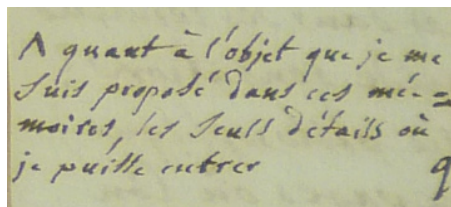 Λ quant à l'objet que je me
suis proposé dans ces mé=
moires, les seuls détails où
je puisse entrer